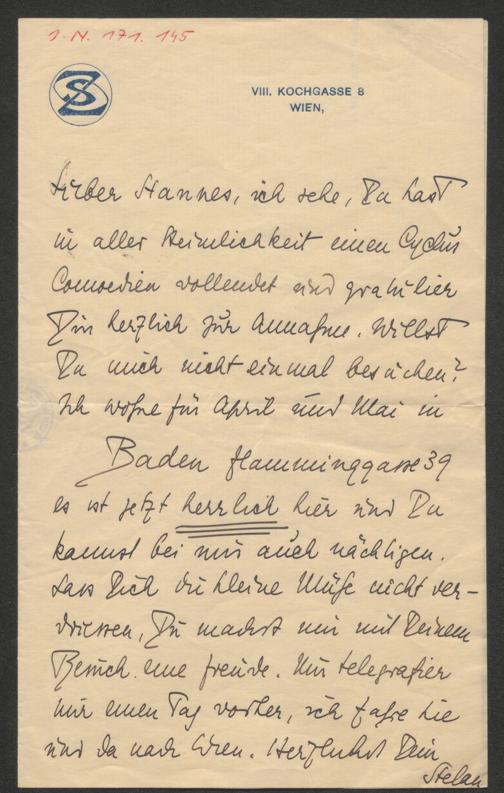 J.N. 171.145
SZ
VIII. KOCHGASSE 8
WIEN,
Lieber Hannes, ich sehe, Du hast
in aller Heimlichkeit einen Cyclus
Comoedien vollendet und gratulier
Dir herzlich zur Annahme. Willst
Du mich nicht einmal besuchen?
Ich wohne für April und Mai in
Baden Flamminggasse 39
es ist jetzt herrlich hier und Du
kannst bei mir auch nächtigen.
Lass Dich die kleine Mühe nicht ver-
driessen, Du machst mir mit Deinem
Besuch eine Freude. Nur telegrafier
mir einen Tag vorher, ich fahre hie
und da nach Wien. Herzlichst Dein
Stefan